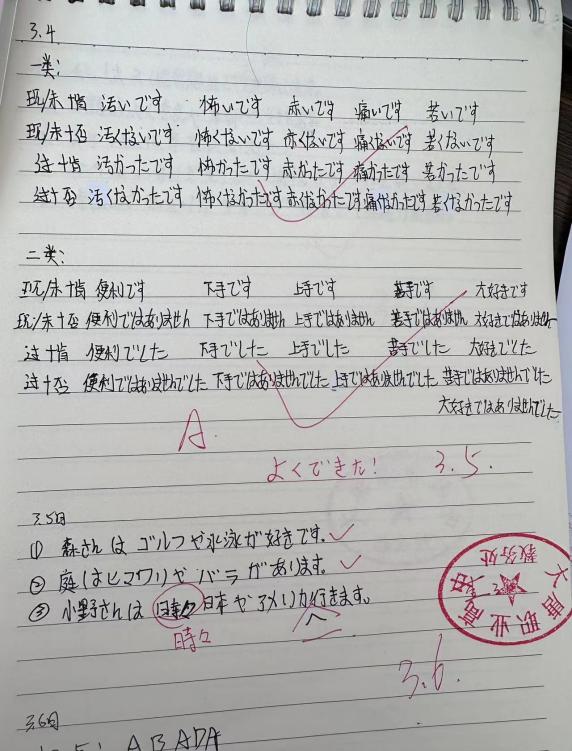 3.4
一类：
现/未十肯 活いです 怖いです 赤いです 痛いです 若いです
现/未十否 活くないです 怖くないです 赤くないです 痛くないです 若くないです
过十肯 活かったです 怖かったです 赤かったです 痛かったです 若かったです
过十否 活くなかったです 怖くなかったです 赤くなかったです 痛くなかったです 若くなかったです
二类：
现/未十肯 便利です 下手です 上手です 苦手です 大好きです
现/未十否 便利ではありません 下手ではありません 上手ではありません 苦手ではありません 大好きではありません
过十肯 便利でした 下手でした 上手でした 苦手でした 大好きでした
过十否 便利ではありませんでした 下手ではありませんでした 上手ではありませんでした 苦手ではありませんでした
大好きではありませんでした
A
よくできた！ 3.5.
3.5日
① 森さんは ゴルフや水泳が好きです。
② 庭はヒマワリや バラがあります。
③ 小野さんは 日本やアメリカ行きます。
へ
時々
教务处
大唐职业高
3.6.
3.6日
A B A D A